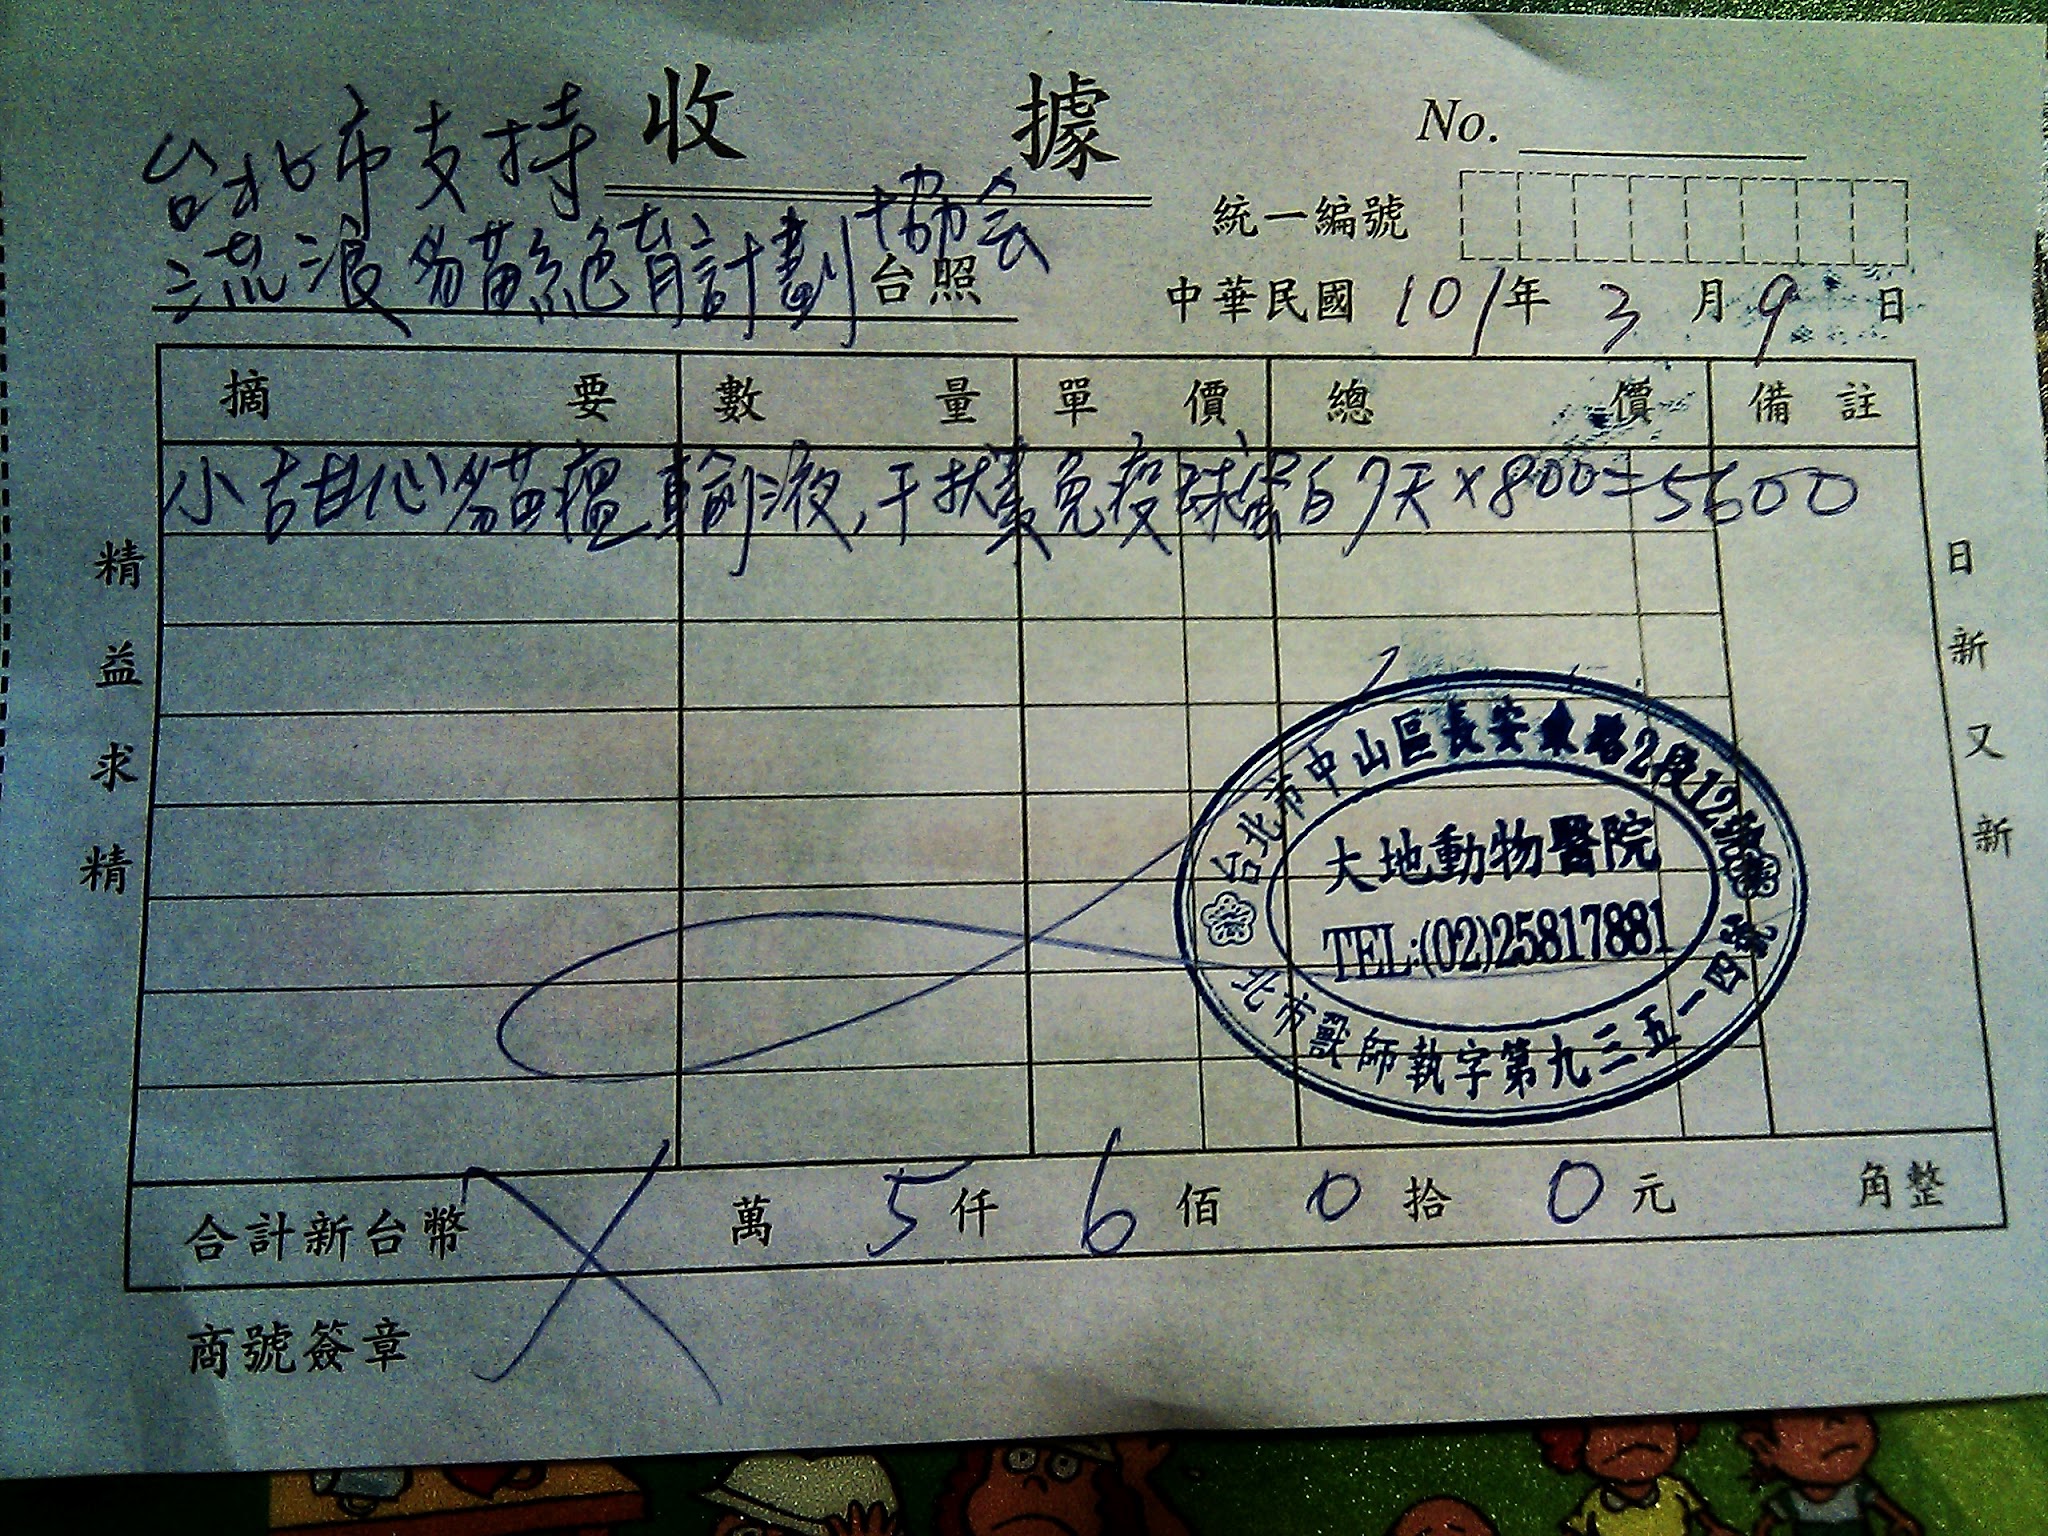 收據
No.
台北市支持
流浪貓絕育計劃協会 台照
統一編號
中華民國 101年 3月 9日
摘要 數量 單價 總價 備註
小甜心貓瘟輸液,干扰素免疫球蛋白7天×800=5600
精益求精
日新又新
台北市中山區長安東路2段12號
大地動物醫院
TEL:(02)25817881
北市獸師執字第九三五一四號
合計新台幣 X 萬 5 仟 6 佰 0 拾 0 元 角整
商號簽章